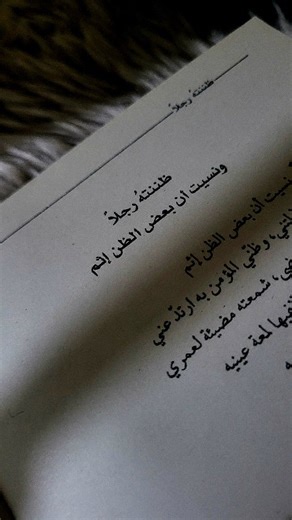 ظننتهُ رجلاً
ظننتهُ رجلاً
ونسيت أن بعض الظن إثم
نسيت أن بعض الظن إثم
وظنّي المؤمن به ارتدّ عني
شمعته مضيئة لعمري
لمعة عينيه